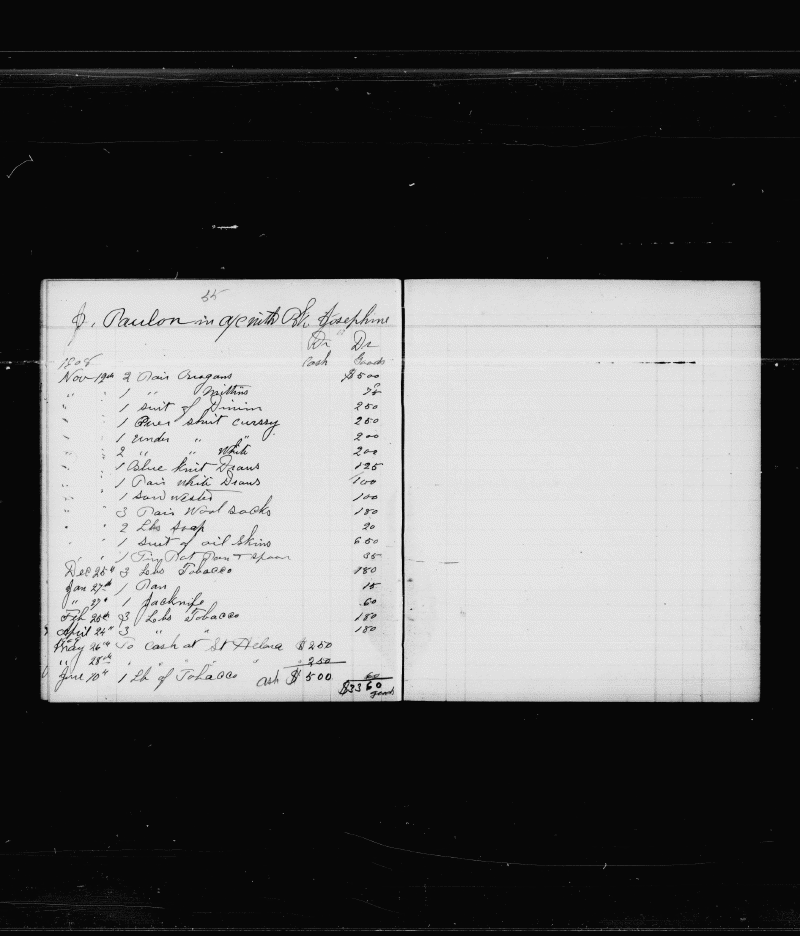 55
J. Paulon in a/c with Bk Josephine
Dr Dr
1808 Cash Goods
Nov 19th 2 Pair Brogans $500
" " 1 " Mittins 75
" " 1 suit of Dinim 250
" " 1 Over shirt curssy 250
" " 1 under " " 200
" " 2 " " White 200
" " 1 Blue knit Draws 125
" " 1 Pair white Draws 100
" " 1 Sow wester 100
" " 3 Pair Wool socks 180
" " 2 Lbs soap 20
" " 1 suit of oil skins 650
" " 1 Tin Pot Pan + spoon 35
Dec 25th 3 Lbs Tobacco 180
Jan 27th 1 Pan 15
" 27" 1 Jacknife 60
Feb 25th 3 Lbs Tobacco 180
April 24th 3 " " 180
May 26th To Cash at St Helena $250
" 28th " " " " 250
June 10th 1 Lb of Tobacco 60
cash $500 $3360
goods